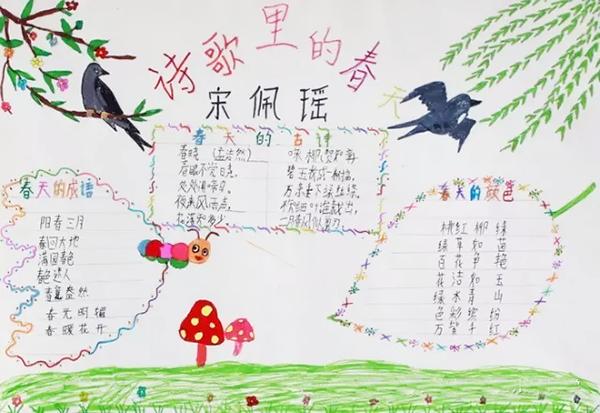 诗歌里的春天
宋佩瑶
春天的古诗
春晓 (孟浩然)
春眠不觉晓,
处处闻啼鸟。
夜来风雨声,
花落知多少。
咏柳 贺知章
碧玉妆成一树高,
万条垂下绿丝绦。
不知细叶谁裁出,
二月春风似剪刀。
春天的成语
阳春三月
春回大地
满园春色
艳达人
春意盎然
春光明媚
春暖花开
春天的颜色
桃红柳绿
绿草如茵
百花争艳
花洁如玉
绿水青山
色彩缤纷
万紫千红